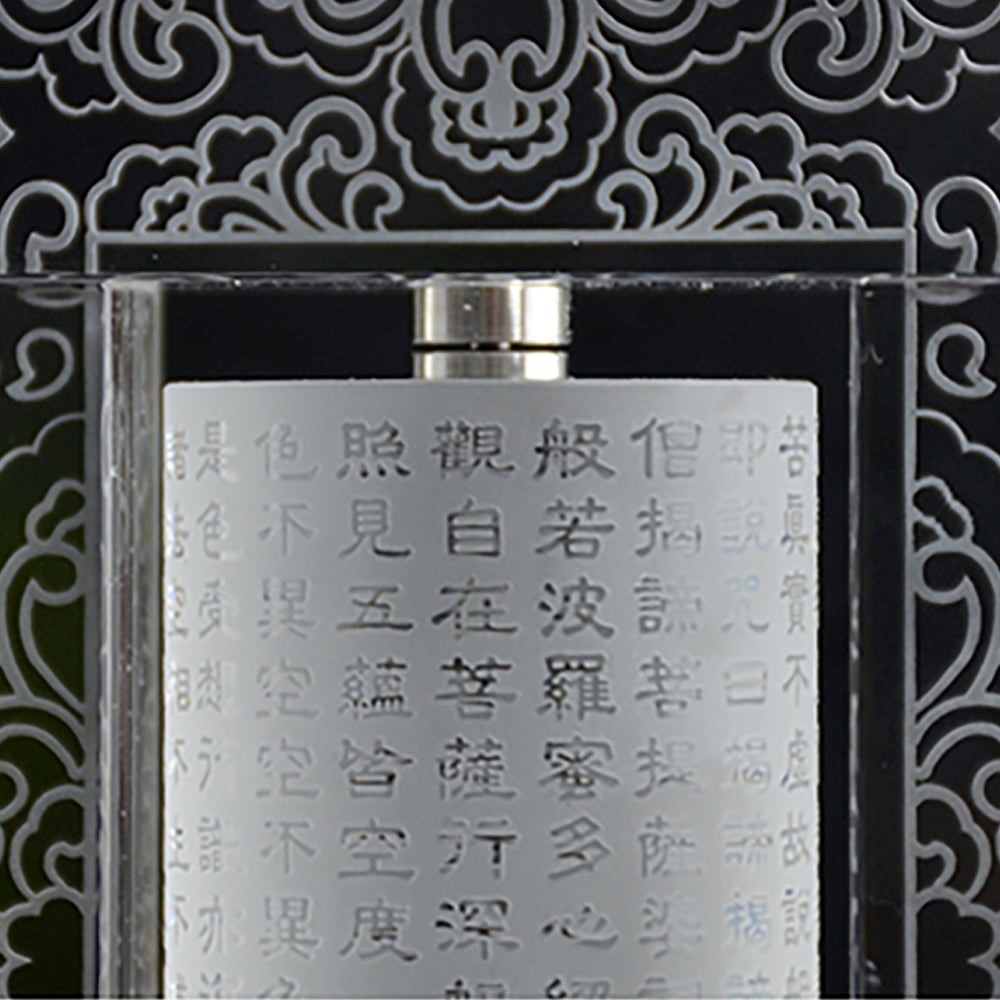 苦眞實不虛故說般
即說咒曰揭諦揭諦
僧揭諦菩提薩婆
般若波羅蜜多心經
觀自在菩薩行深般
照見五蘊皆空度
色不異空空不異色
是色受想行識亦復
空相不生不